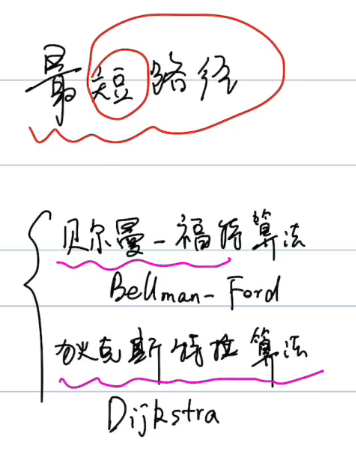 最短路径
贝尔曼-福特算法
Bellman-Ford
狄克斯特拉算法
Dijkstra